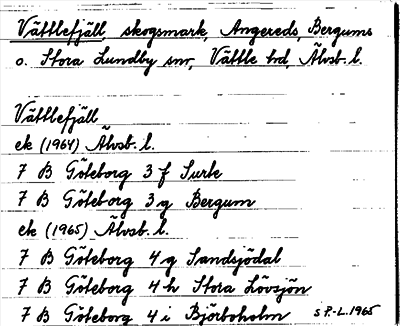 Vättlefjäll, skogsmark, Angereds, Bergums
o. Stora Lundby snr, Vättle hd, Älvsb. l.
Vättlefjäll
ek (1964) Älvsb. l.
7 B Göteborg 3 f Surte
7 B Göteborg 3 g Bergum
ek (1965) Älvsb. l.
7 B Göteborg 4 g Sandsjödal
7 B Göteborg 4 h Stora Lövsjön
7 B Göteborg 4 i Björboholm S P.-L. 1965